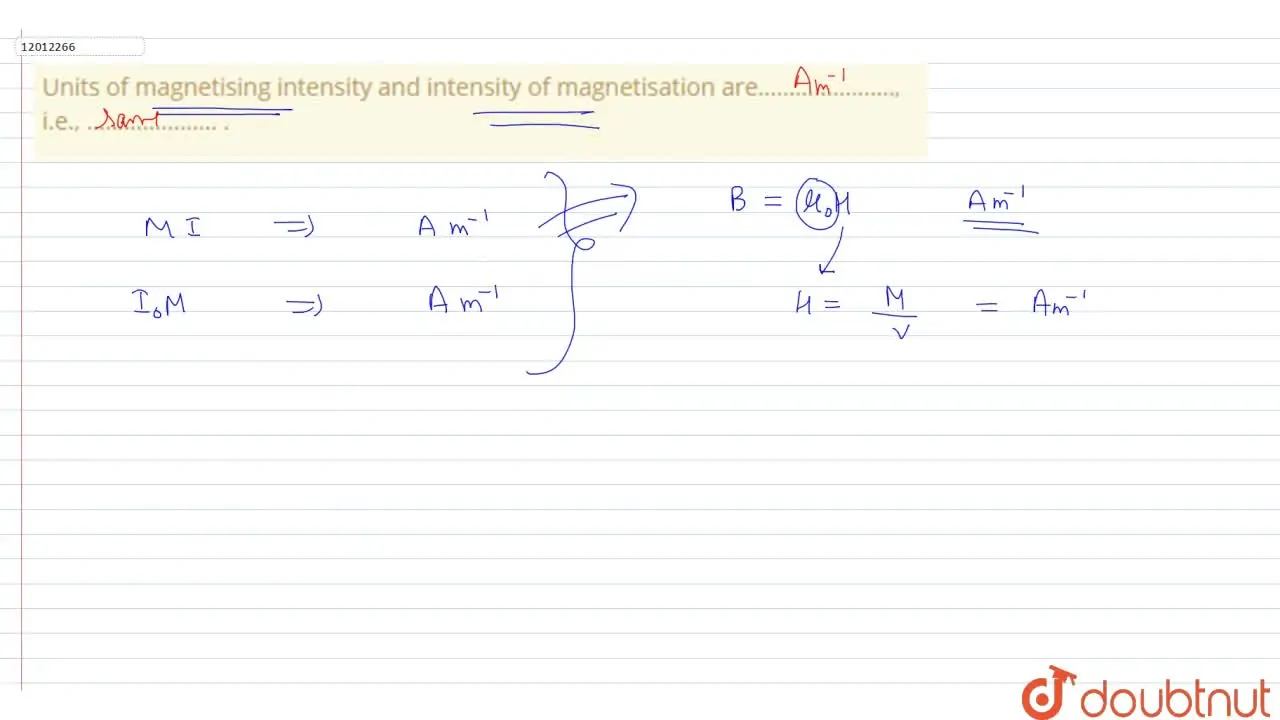 12012266
Units of magnetising intensity and intensity of magnetisation are...................... Am⁻¹,
i.e., same ..................... .
M I ⇒ A m⁻¹
B = μ₀H A m⁻¹
I₀M ⇒ A m⁻¹
H = M/V = Am⁻¹
doubtnut